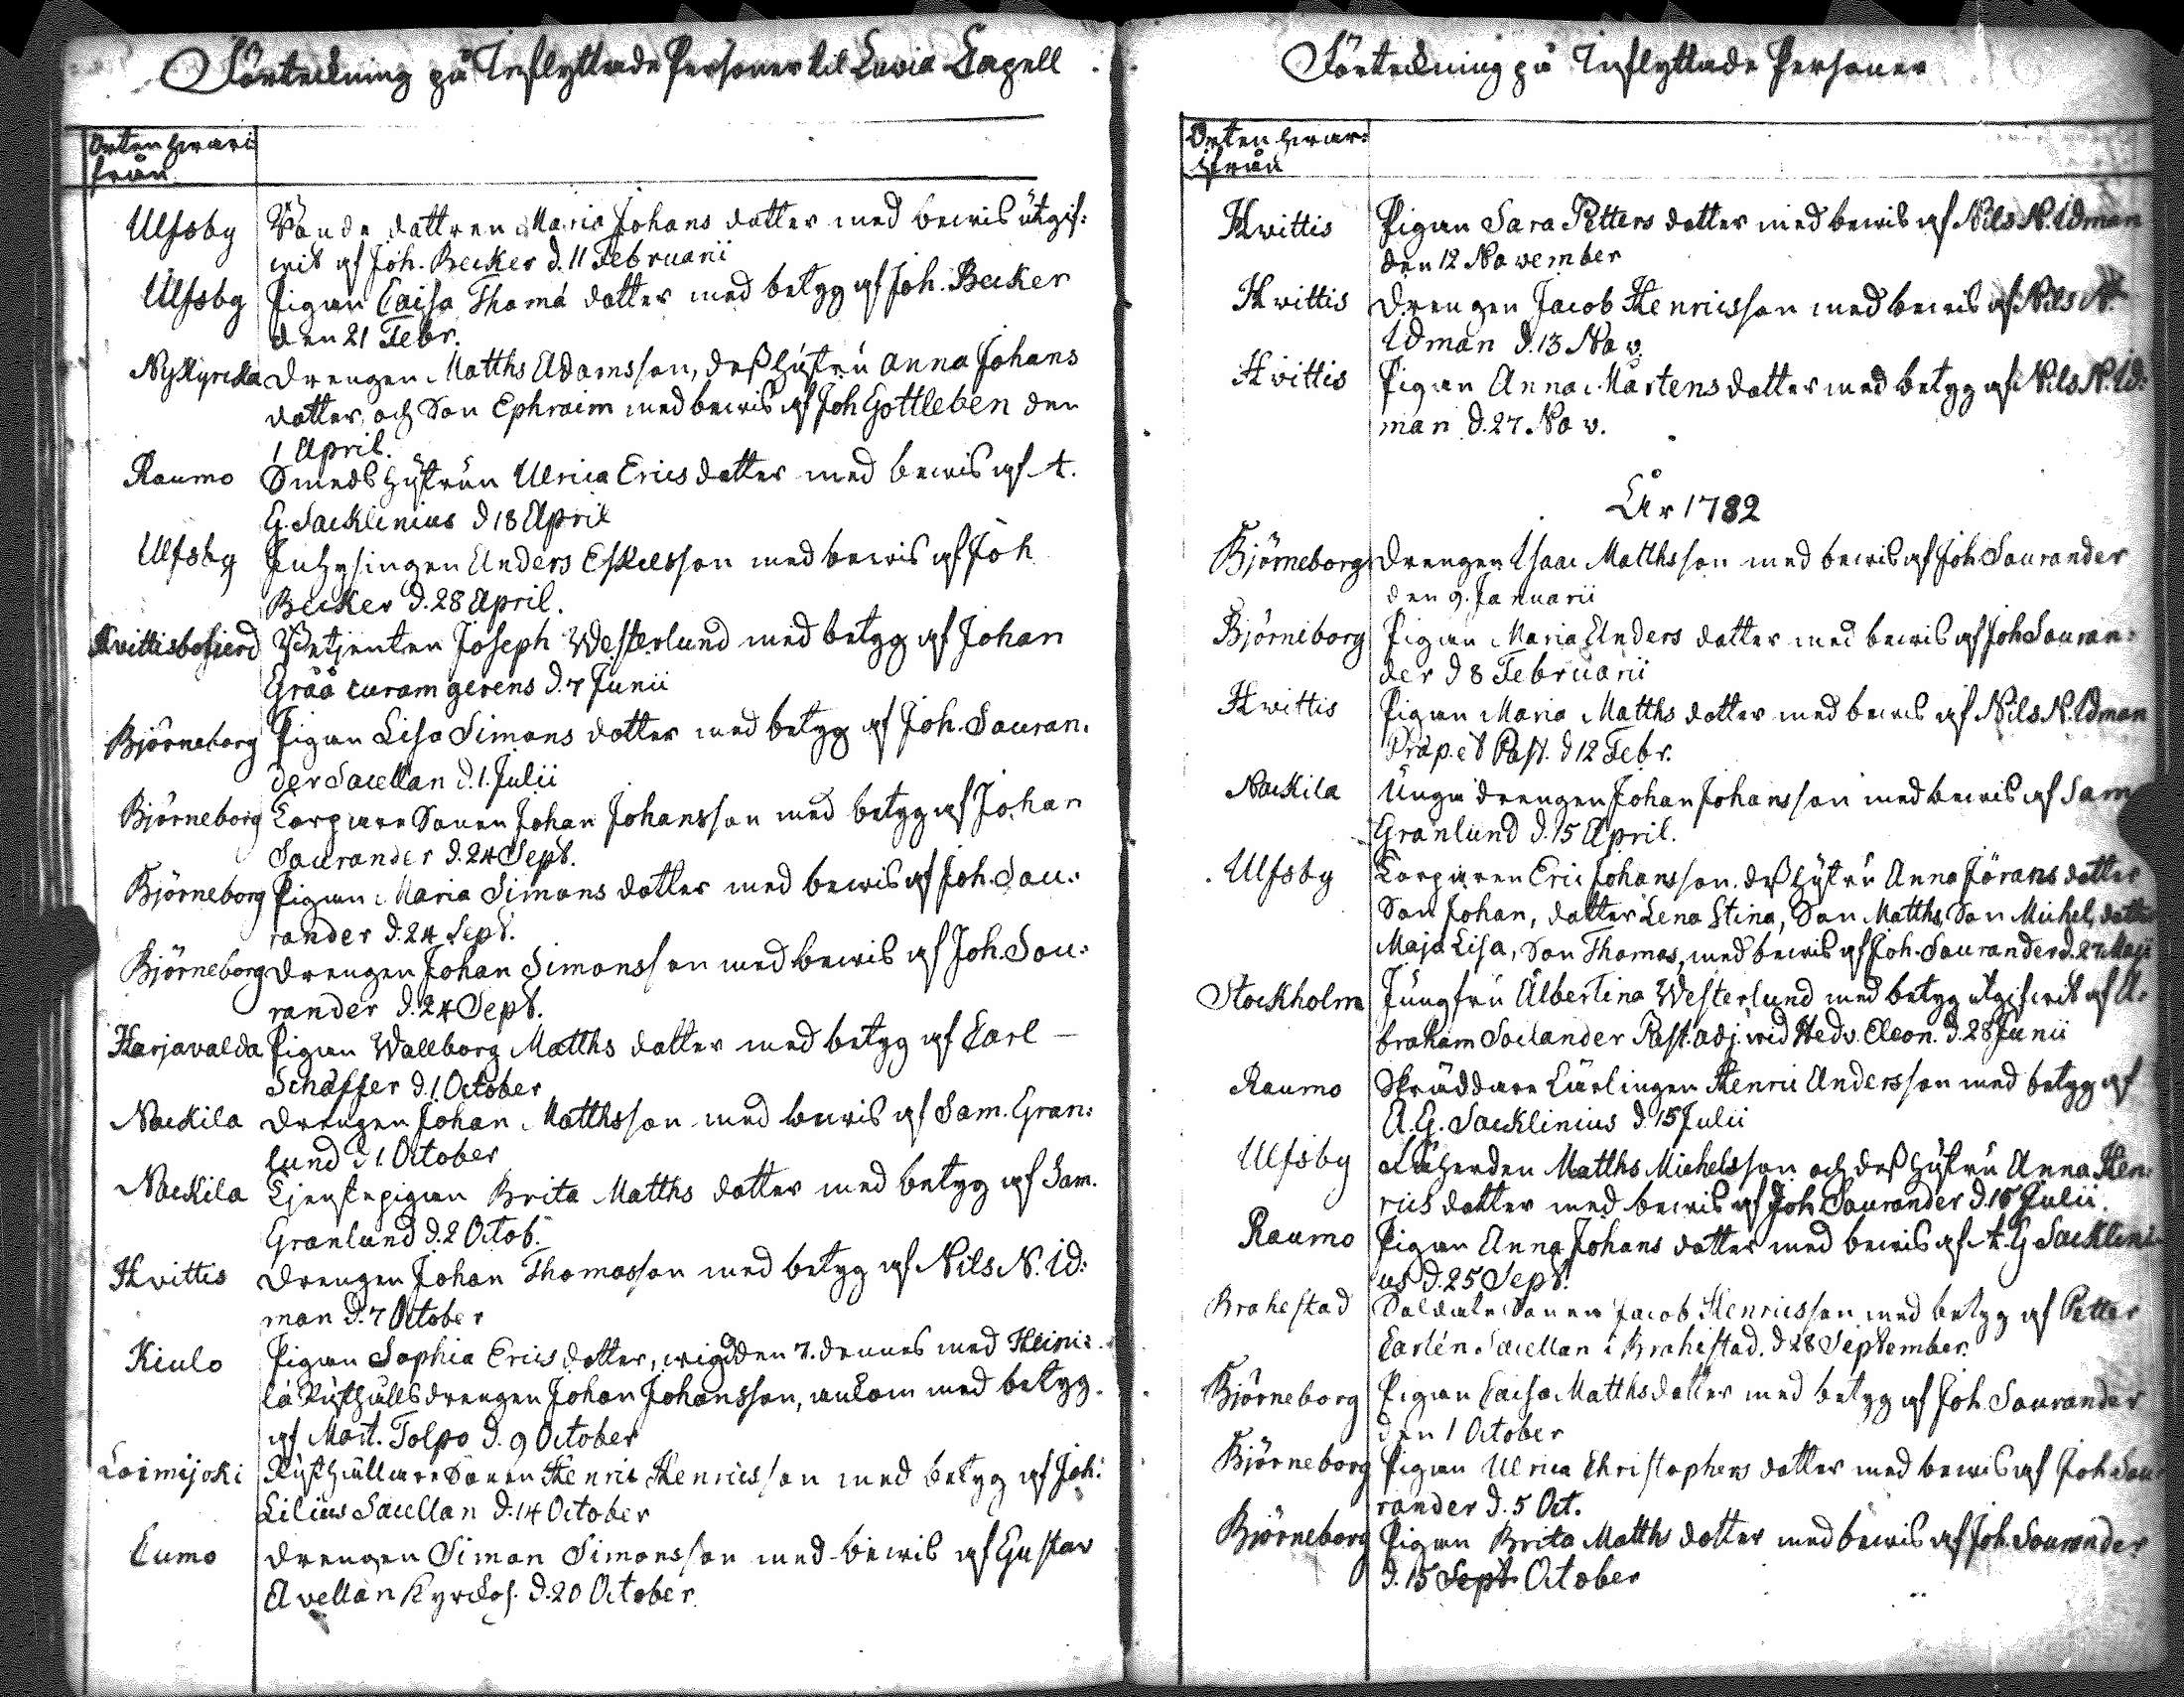 Förteckning på Inflyttade Personer til Luvia Capell
Orten hvari
från
Ulfsby Bonde dottren Maria Johans dotter med bewis utgif:
wit af Joh. Becker d. 11 Februarii
Ulfsby Pigan Caisa Thomæ dotter med betyg af Joh. Becker
den 21 Febr.
Nykyrcka Drengen Matths Adamsson, deß hustru Anna Johans
dotter och Son Ephraim med bewis af Joh Gottleben den
1 April.
Raumo Smeds hustrun Ulrica Erics dotter med bewis af A.
G. Sacklinius d 18 April
Ulfsby Inhysingen Anders Eskelsson med bewis af Joh
Becker d. 28 April.
Hvittisbofjerd Betjenten Joseph Westerlund med betyg af Johan
Gråå curam gerens d. 7 Junii
Björneborg Pigan Lisa Simons dotter med betyg af Joh. Sauran:
der Sacellan d. 1. Julii
Björneborg Torpare Sonen Johan Johansson med betyg af Johan
Saurander d. 24 Sept.
Björneborg Pigan Maria Simons dotter med bewis af Joh. Sau:
rander d. 24 Sept.
Björneborg Drengen Johan Simonsson med bewis af Joh. Sau:
rander d. 24 Sept.
Harjavalda Pigan Wallborg Matths dotter med betyg af Carl
Schæffer d. 1 October
Nackila Drengen Johan Matthsson med bewis af Sam. Gran:
lund d 1. October
Nackila Tjenstepigan Brita Matths dotter med betyg af Sam.
Granlund d. 2 Octob.
Hvittis Drengen Johan Thomasson med betyg af Nils N. Id:
man d. 7 October
Kiulo Pigan Sophia Erics dotter, wigd den 7. dennes med Heini:
lä Rusthålls drengen Johan Johansson, ankom med betyg
af Mart. Tolpo d. 9 October
Loimijoki Rusthållare Sonen Henric Henricsson med betyg af Joh:
Lilius Sacellan d. 14 October
Cumo Drengen Simon Simonsson med bewis af Gustav
Avellan Kyrckoh. d. 20 October
Förteckning på Inflyttade Personer
Orten hvar:
ifrån
Hvittis Pigan Sara Petters dotter med bewis af Nils N. Idman
den 12 November
Hvittis Drengen Jacob Henricsson med bewis af Nils N.
Idman d. 13 Nov.
Hvittis Pigan Anna Mårtens dotter med betyg af Nils N. Id:
man d. 27 Nov.
År 1782
Björneborg Drengen Isaac Matthsson med bewis af Joh Saurander
den 9. Januarii
Björneborg Pigan Maria Anders dotter med bewis af Joh Sauran:
der d 8 Februarii
Hvittis Pigan Maria Matths dotter med bewis af Nils N. Idman
Præp. et Past. d 12 Febr.
Nackila Unga drengen Johan Johansson med bewis af Sam
Granlund d. 15 April.
Ulfsby Torparen Eric Johansson, deß hustru Anna Jörans dotter
Son Johan, dotter Lena Stina, Son Matths, Son Michel, dotter
Maja Lisa, Son Thomas, med bewis af Joh. Saurander d. 27 Maji
Stockholm Jungfru Albertina Westerlund med betyg utgifwit af A.
braham Soelander Past. adj. wid Hedv. Eleon. d. 28 Junii
Raumo Skräddare Lärlingen Henric Andersson med betyg af
A. G. Sacklinius d. 15 Julii
Ulfsby Matths Michelsson och deß hustru Anna Hen:
rics dotter med bewis af Joh Saurander d. 18 Julii.
Raumo Pigan Anna Johans dotter med bewis af A. G Sacklini
us d. 25 Sept.
Brahestad Soldate Sonen Jacob Henricsson med betyg af Petter
Carlén Sacellan i Brahestad. d 28 September.
Björneborg Pigan Caisa Matths dotter med betyg af Joh. Saurander
den 1 October
Björneborg Pigan Ulrica Christophers dotter med bewis af Joh Sau
rander d. 5 Oct.
Björneborg Pigan Brita Matths dotter med bewis af Joh. Saurander
d. 15 Sept October